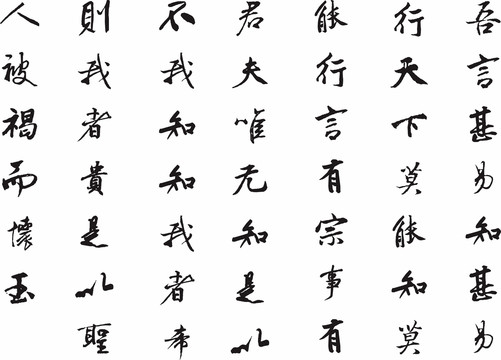 吾言甚易知甚易
行天下莫能知莫
能行言有宗事有
君夫唯无知是以
不我知知我者希
則我者貴是以聖
人被褐而懷玉